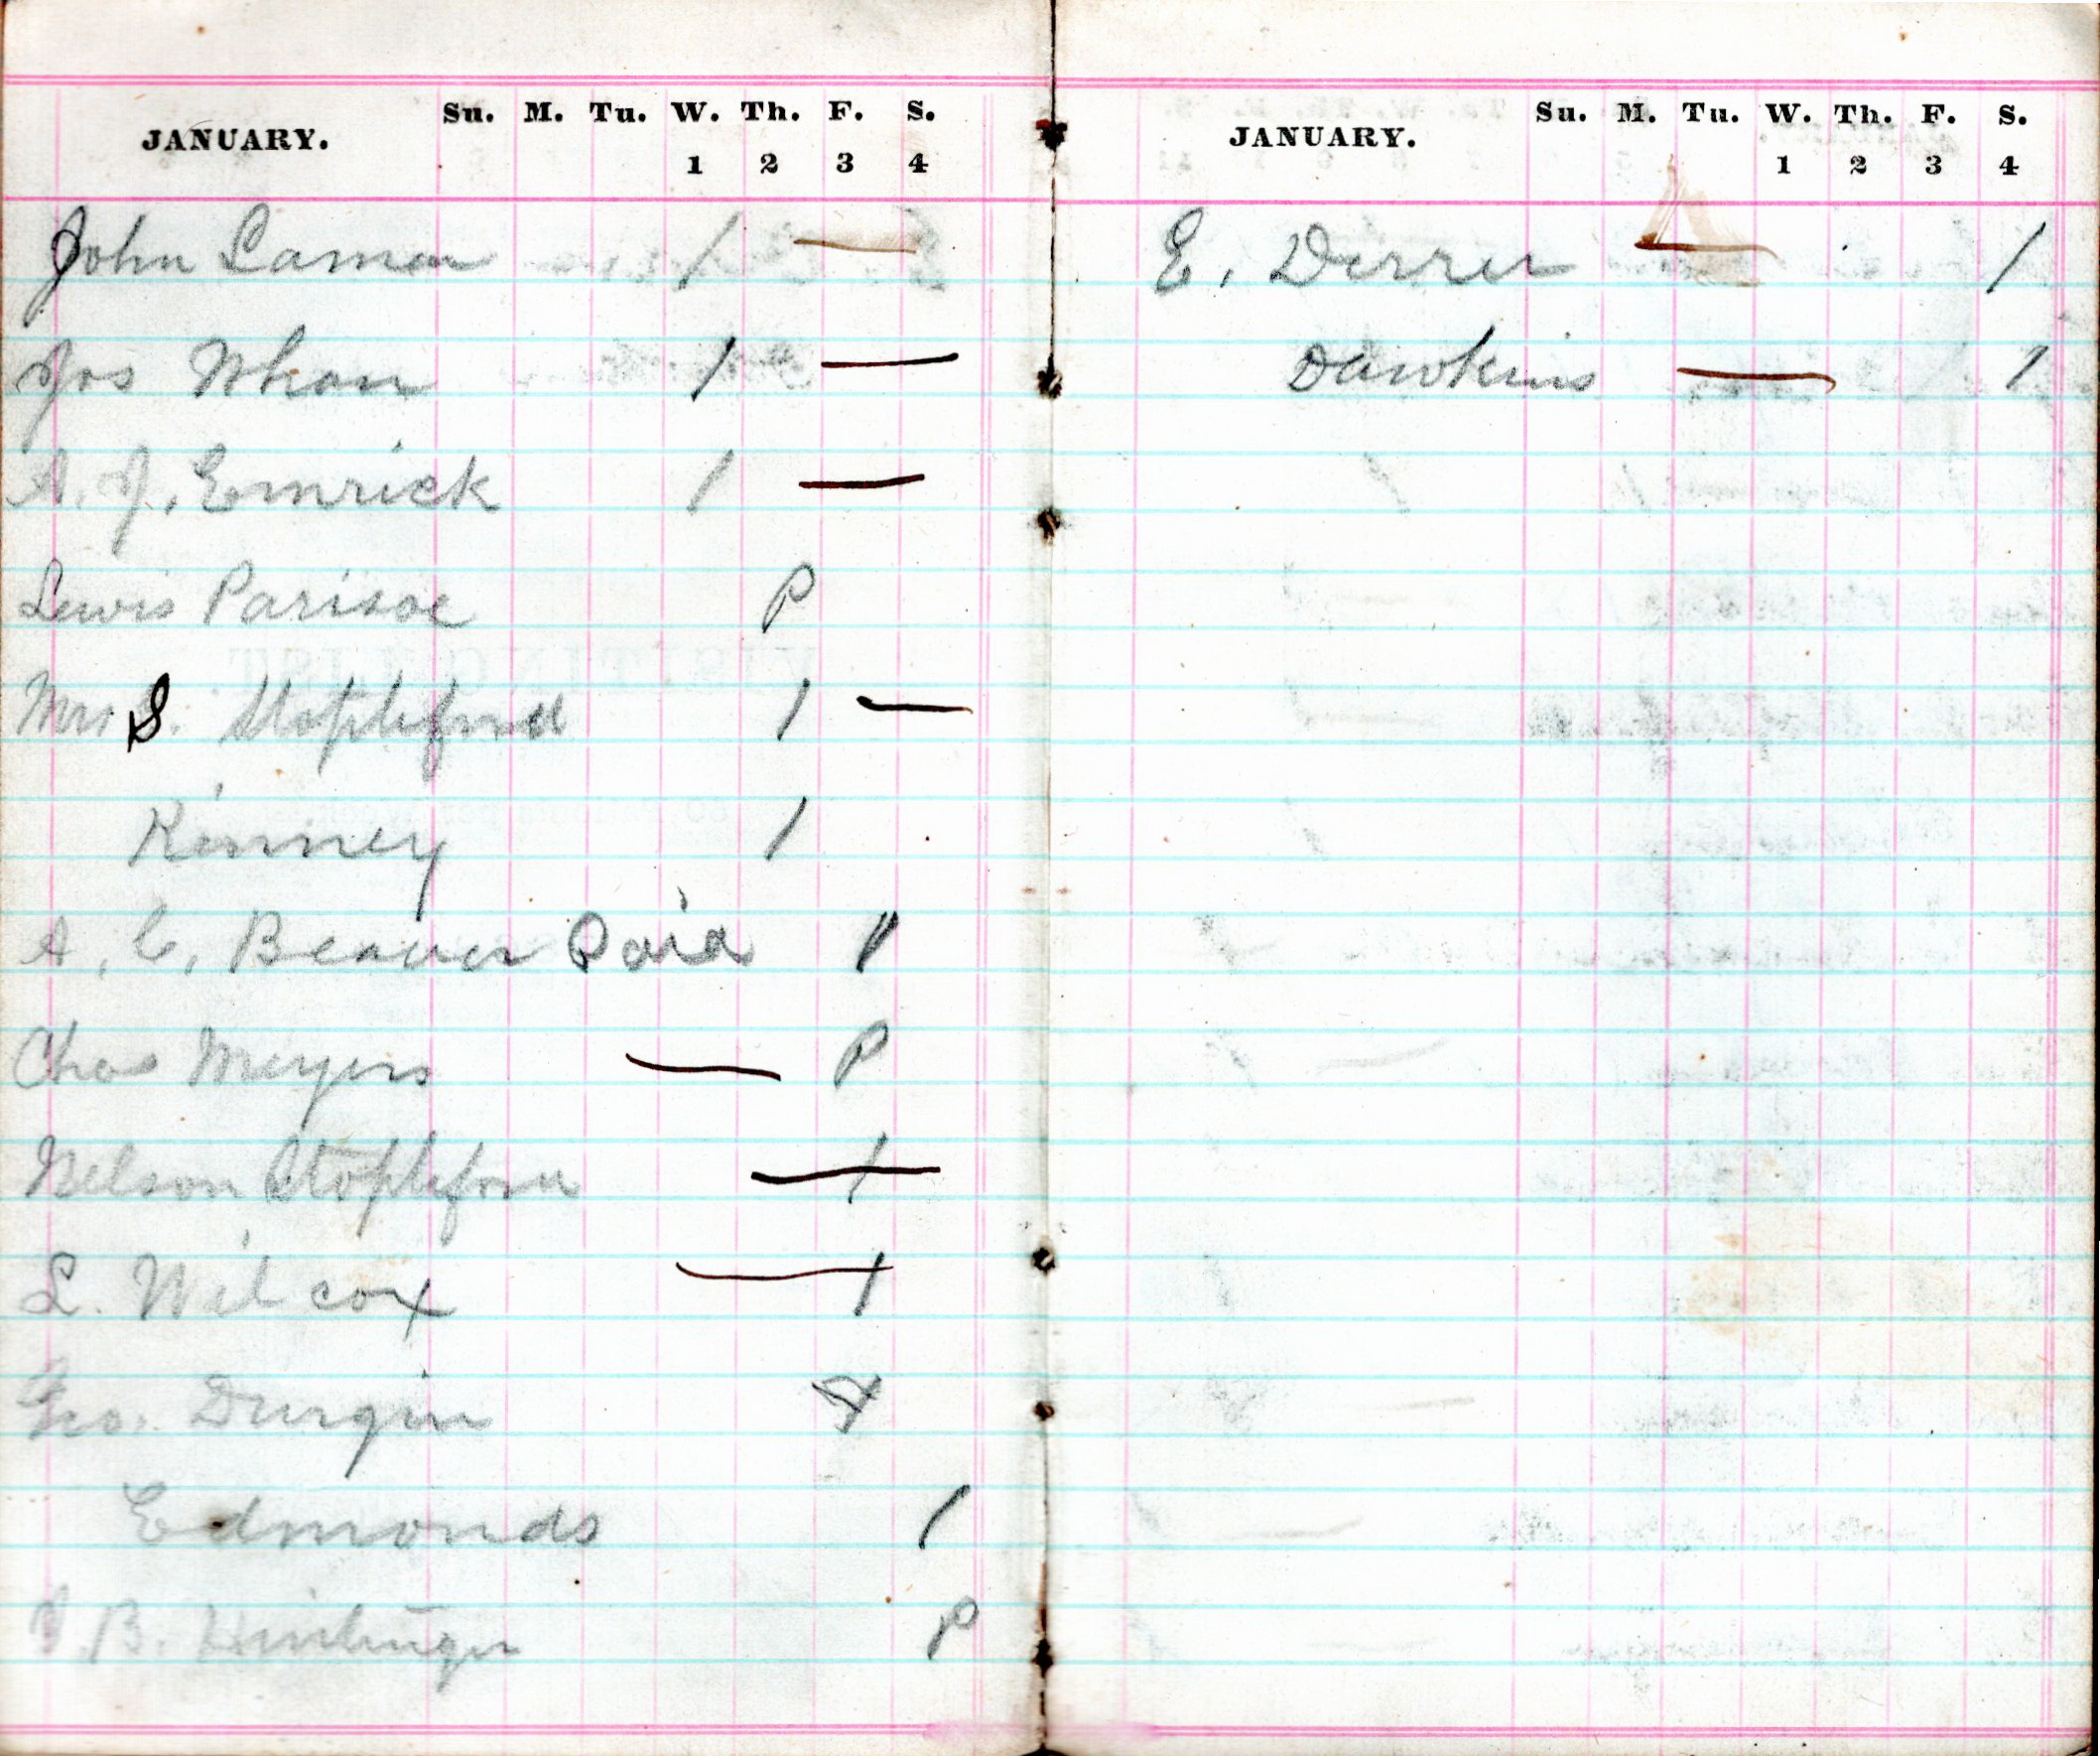 JANUARY. Su. M. Tu. W. Th. F. S.
1 2 3 4
John Laman 1 —
Jos Whan 1 —
A. J. Emrick 1 —
Lewis Parisoe P
Mrs S. Stopleford 1 —
Kinney 1
A. C. Beaver Paid 1
Chas Meyers — P
Nelson Stopleford — 1
L. Wilcox — 1
Geo. Durgin
Edmonds 1
B. P
JANUARY. Su. M. Tu. W. Th. F. S.
1 2 3 4
E. Derrer — 1
Dawkins — 1